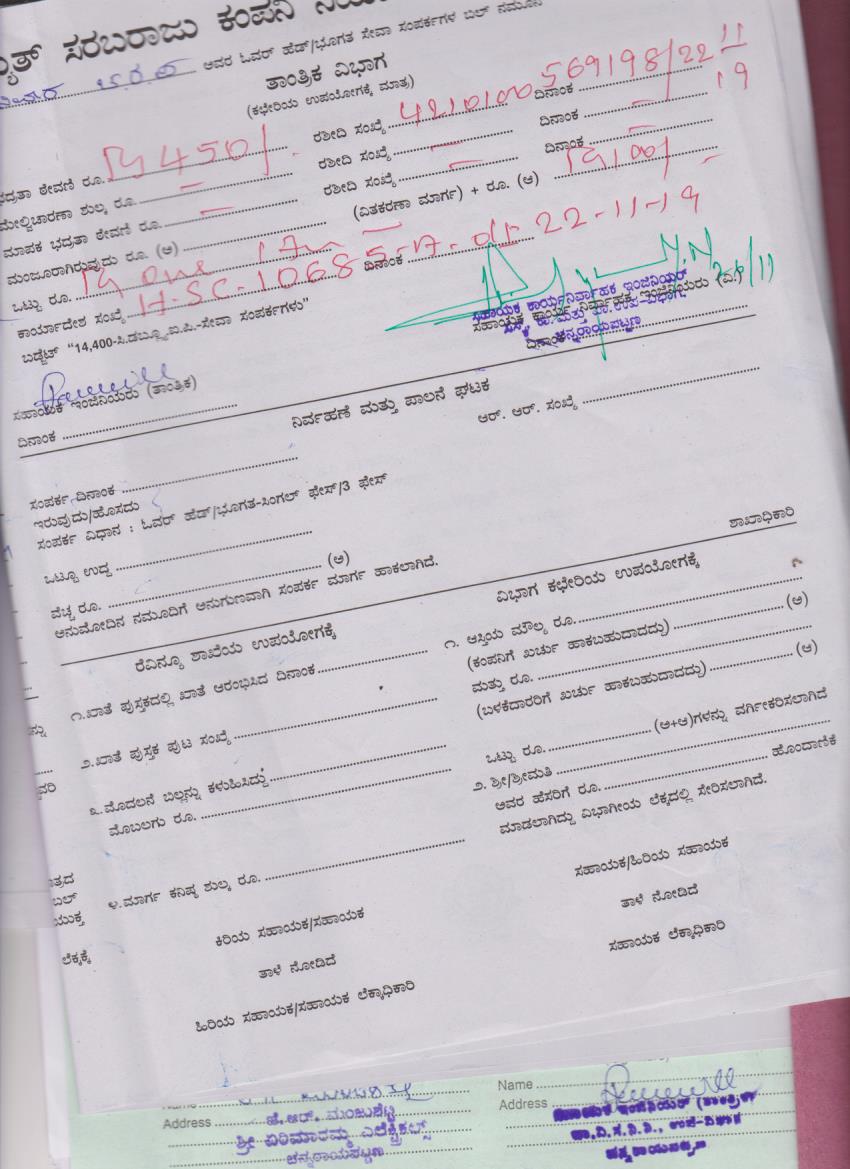 ಸರಬರಾಜು ಕಂಪನಿ
ಅವರ ಓವರ್ ಹೆಡ್/ಭೂಗತ ಸೇವಾ ಸಂಪರ್ಕಗಳ ಬಿಲ್ ನಮೂನೆ
ತಾಂತ್ರಿಕ ವಿಭಾಗ
(ಕಛೇರಿಯ ಉಪಯೋಗಕ್ಕೆ ಮಾತ್ರ)
ಭದ್ರತಾ ಠೇವಣಿ ರೂ. 450/- ರಶೀದಿ ಸಂಖ್ಯೆ 4210100569198/22 ದಿನಾಂಕ 11/19
ಮೇಲ್ವಿಚಾರಣಾ ಶುಲ್ಕ ರೂ. — ರಶೀದಿ ಸಂಖ್ಯೆ — ದಿನಾಂಕ —
ಮಾಪಕ ಭದ್ರತಾ ಠೇವಣಿ ರೂ. — ರಶೀದಿ ಸಂಖ್ಯೆ — ದಿನಾಂಕ —
ಮಂಜೂರಾಗಿರುವುದು ರೂ. (ಅ) (ವಿತಕರಣಾ ಮಾರ್ಗ) + ರೂ. (ಆ) 100/-
ಒಟ್ಟು ರೂ. one
ಕಾರ್ಯಾದೇಶ ಸಂಖ್ಯೆ H-SC-10685-17- dt 22-11-19 ದಿನಾಂಕ
ಬಡ್ಜೆಟ್ "14,400-ಸಿ.ಡಬ್ಲ್ಯೂ.ಐ.ಪಿ.-ಸೇವಾ ಸಂಪರ್ಕಗಳು"
ಸಹಾಯಕ ಕಾರ್ಯನಿರ್ವಾಹಕ ಇಂಜಿನಿಯರ್
ಸಹಾಯಕ ಕಾರ್ಯನಿರ್ವಾಹಕ ಇಂಜಿನಿಯರು (ವಿ.)
ಚನ್ನರಾಯಪಟ್ಟಣ
ದಿನಾಂಕ
ಸಹಾಯಕ ಇಂಜಿನಿಯರು (ತಾಂತ್ರಿಕ)
ದಿನಾಂಕ
ನಿರ್ವಹಣೆ ಮತ್ತು ಪಾಲನೆ ಘಟಕ
ಆರ್. ಆರ್. ಸಂಖ್ಯೆ
ಸಂಪರ್ಕ ದಿನಾಂಕ
ಇರುವುದು/ಹೊಸದು
ಸಂಪರ್ಕ ವಿಧಾನ : ಓವರ್ ಹೆಡ್/ಭೂಗತ-ಸಿಂಗಲ್ ಫೇಸ್/3 ಫೇಸ್
ಒಟ್ಟೂ ಉದ್ದ
ವೆಚ್ಚ ರೂ. (ಅ)
ಅನುಮೋದಿನ ನಮೂದಿಗೆ ಅನುಗುಣವಾಗಿ ಸಂಪರ್ಕ ಮಾರ್ಗ ಹಾಕಲಾಗಿದೆ.
ಶಾಖಾಧಿಕಾರಿ
ರೆವಿನ್ಯೂ ಶಾಖೆಯ ಉಪಯೋಗಕ್ಕೆ
೧.ಖಾತೆ ಪುಸ್ತಕದಲ್ಲಿ ಖಾತೆ ಆರಂಭಿಸಿದ ದಿನಾಂಕ
೨.ಖಾತೆ ಪುಸ್ತಕ ಪುಟ ಸಂಖ್ಯೆ
೩.ಮೊದಲನೆ ಬಿಲ್ಲನ್ನು ಕಳುಹಿಸಿದ್ದು
ಮೊಬಲಗು ರೂ.
೪.ಮಾರ್ಗ ಕನಿಷ್ಠ ಶುಲ್ಕ ರೂ.
ಕಿರಿಯ ಸಹಾಯಕ/ಸಹಾಯಕ
ತಾಳೆ ನೋಡಿದೆ
ಹಿರಿಯ ಸಹಾಯಕ/ಸಹಾಯಕ ಲೆಕ್ಕಾಧಿಕಾರಿ
ವಿಭಾಗ ಕಛೇರಿಯ ಉಪಯೋಗಕ್ಕೆ
೧. ಆಸ್ತಿಯ ಮೌಲ್ಯ ರೂ.
(ಕಂಪನಿಗೆ ಖರ್ಚು ಹಾಕಬಹುದಾದದ್ದು) (ಅ)
ಮತ್ತು ರೂ.
(ಬಳಕೆದಾರರಿಗೆ ಖರ್ಚು ಹಾಕಬಹುದಾದದ್ದು) (ಆ)
ಒಟ್ಟು ರೂ. (ಅ+ಆ)ಗಳನ್ನು ವರ್ಗೀಕರಿಸಲಾಗಿದೆ
೨. ಶ್ರೀ/ಶ್ರೀಮತಿ
ಅವರ ಹೆಸರಿಗೆ ರೂ. ಹೊಂದಾಣಿಕೆ
ಮಾಡಲಾಗಿದ್ದು ವಿಭಾಗೀಯ ಲೆಕ್ಕದಲ್ಲಿ ಸೇರಿಸಲಾಗಿದೆ.
ಸಹಾಯಕ/ಹಿರಿಯ ಸಹಾಯಕ
ತಾಳೆ ನೋಡಿದೆ
ಸಹಾಯಕ ಲೆಕ್ಕಾಧಿಕಾರಿ
ಲೆಕ್ಕಕ್ಕೆ
Address ಜೆ.ಆರ್. ಮಂಜುಶೆಟ್ಟಿ
ಶ್ರೀ ಪಿರಿಮಾರಮ್ಮ ಎಲೆಕ್ಟ್ರಿಕಲ್ಸ್
ಚನ್ನರಾಯಪಟ್ಟಣ
Name
Address ಸಹಾಯಕ ಇಂಜಿನಿಯರ್ (ತಾಂತ್ರಿಕ)
ಚಾ.ವಿ.ಸ.ನಿ.ನಿ., ಉಪ-ವಿಭಾಗ
ಚನ್ನರಾಯಪಟ್ಟಣ